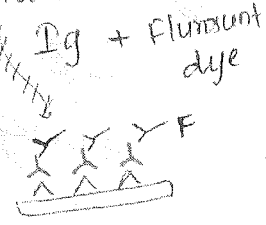 Ig + Flurosunt
dye
F